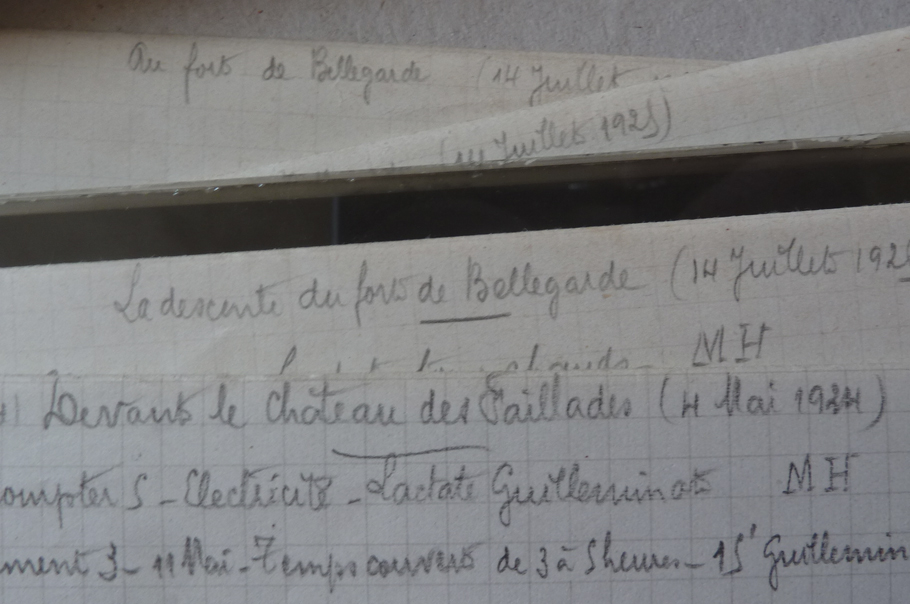 Au fort de Bellegarde (14 Juillet
Juillet 1925)
La descente du fort de Bellegarde (14 Juillet 192
MH
Devant le château des Taillades (4 Mai 1924)
ompter 5 - Electricité - Lactate Guilleminot MH
ment 3 - 11 Mai - Temps couvert de 3 à 5 heures - 15' Guillemin